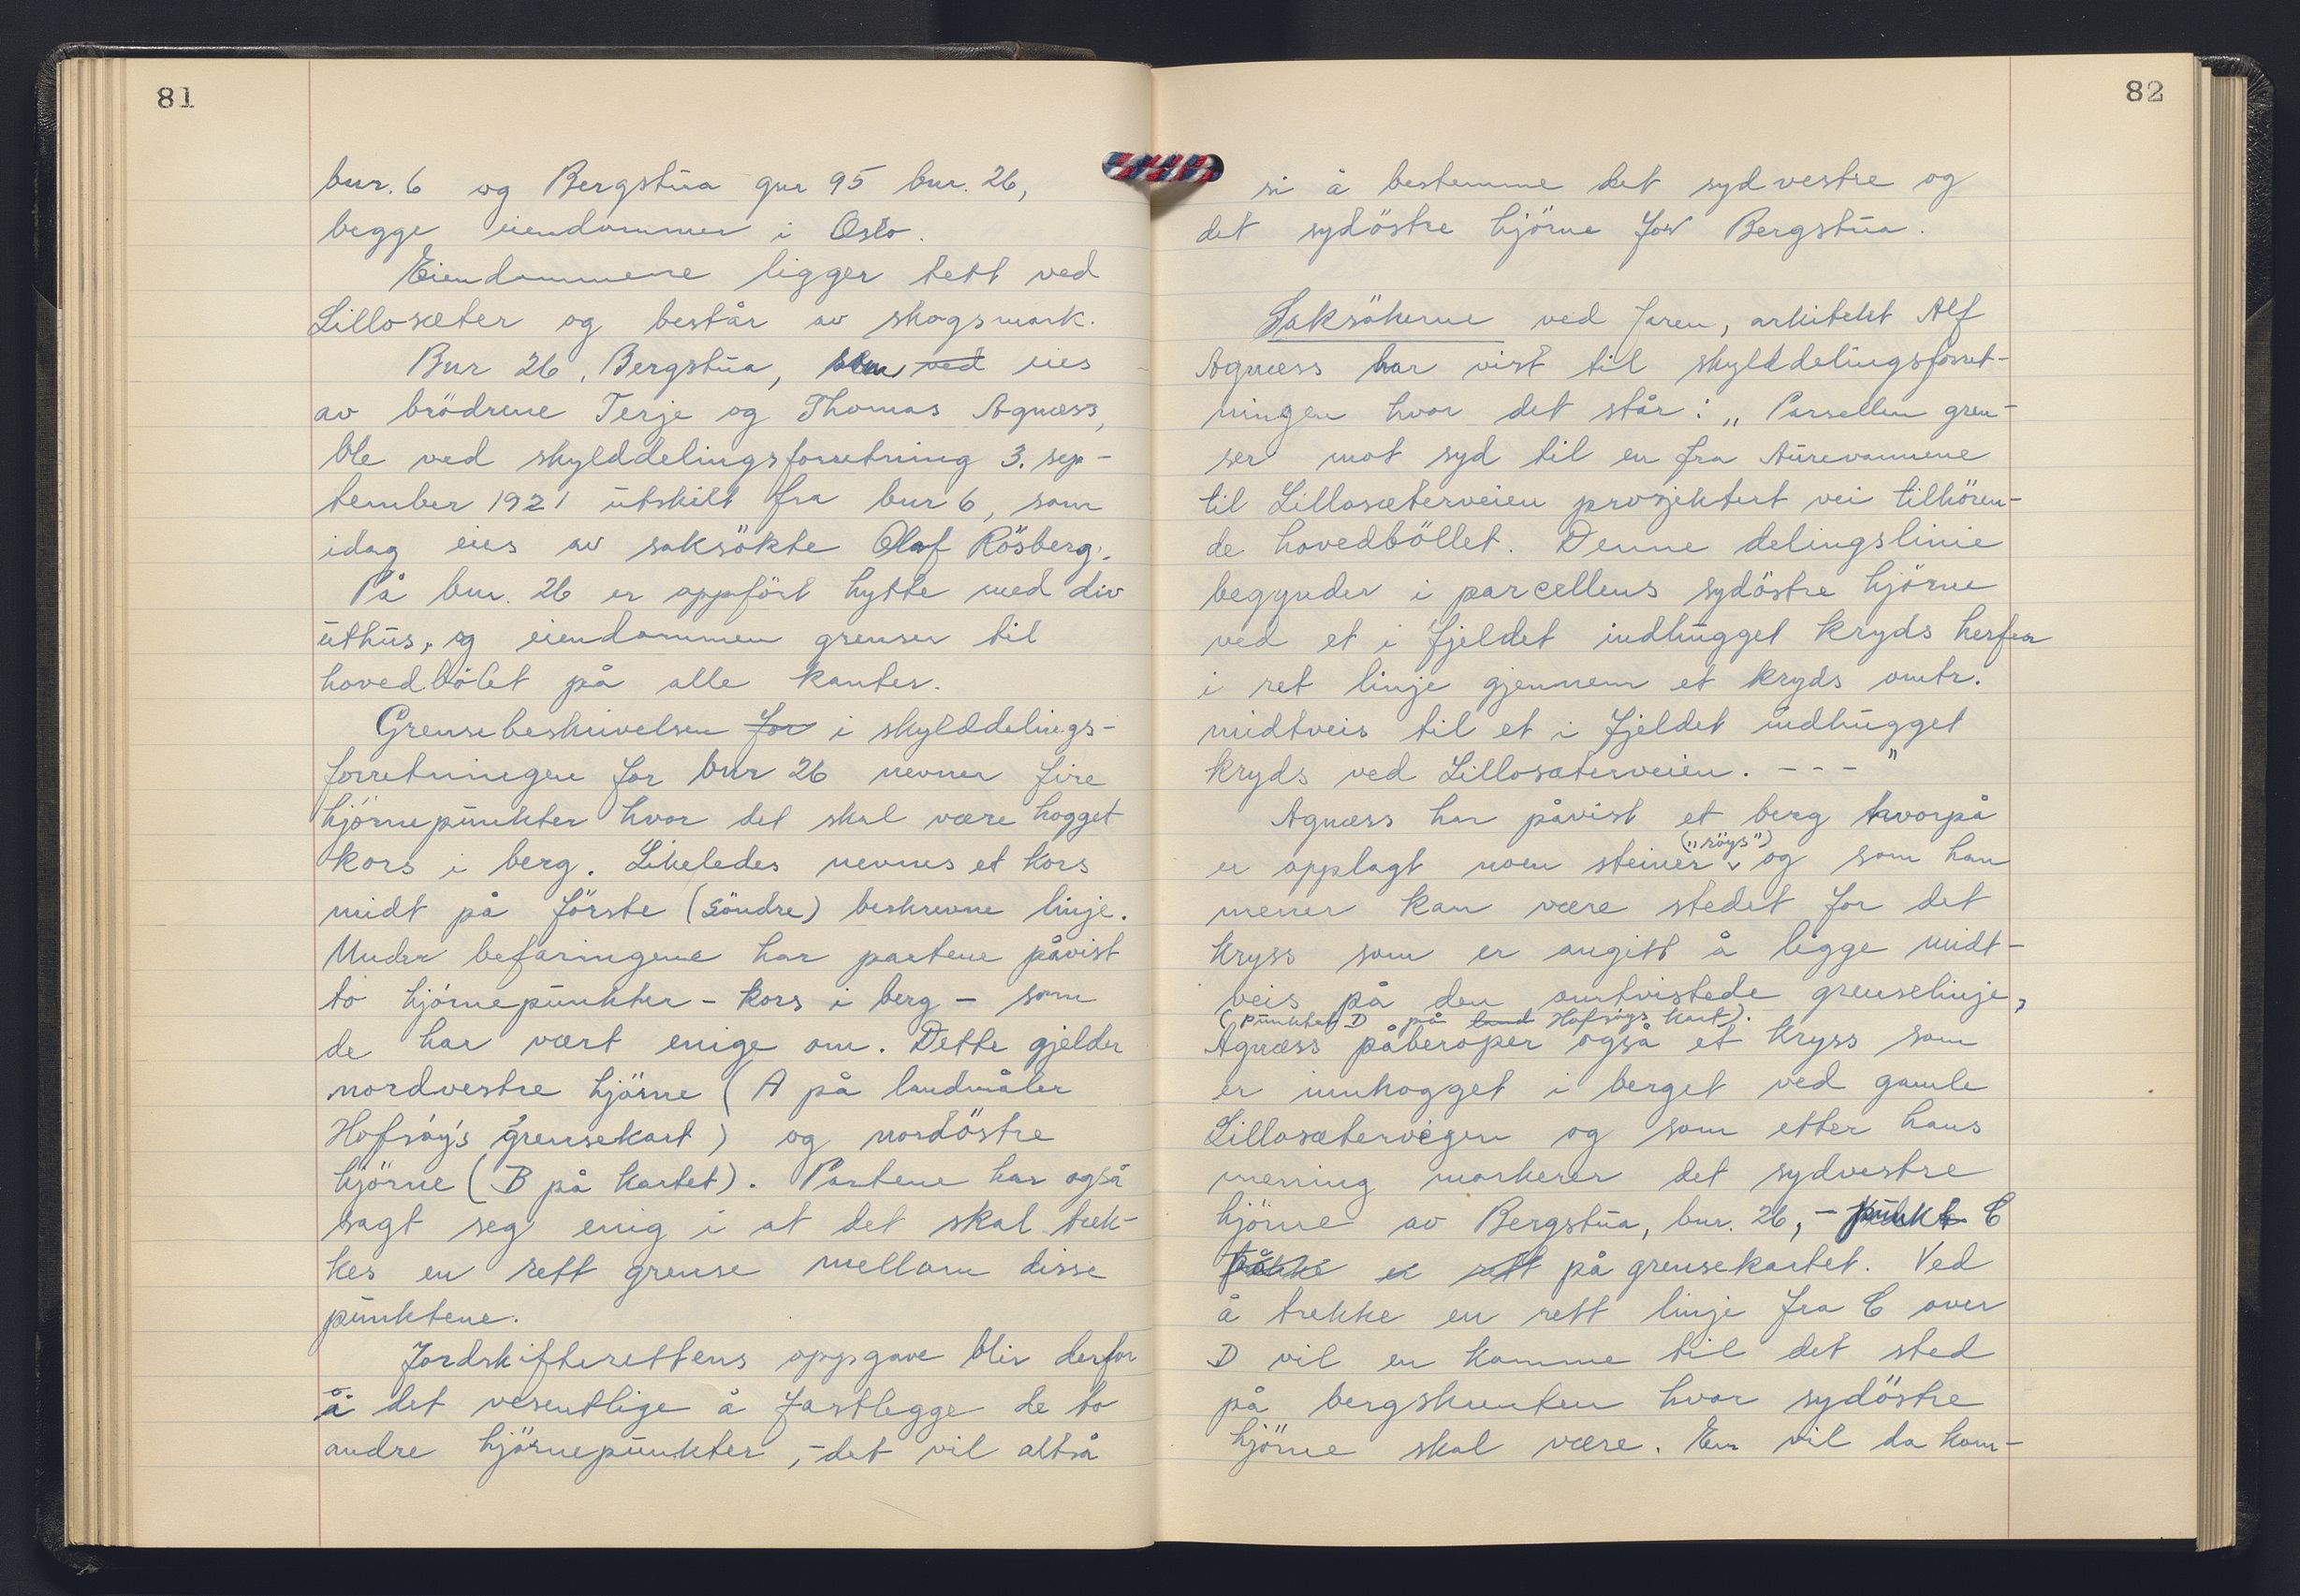 81
bnr. 6 og Bergstua gnr 95 bnr. 26,
begge eiendommer i Oslo.
Eiendommene ligger tett ved
Lillosæter og består av skogsmark.
Bnr 26, Bergstua, som ved eies
av brödrene Terje og Thomas Agnæss,
ble ved skylddelingsforretning 3. sep-
tember 1921 utskilt fra bnr 6, som
idag eies av saksökte Olaf Rösberg.
På bnr. 26 er oppfört hytte med div
uthus, og eiendommen grenser til
hovedbölet på alle kanter.
Grensebeskrivelsen for i skylddelings-
forretningen for bnr 26 nevner fire
hjörnepunkter hvor det skal være hogget
kors i berg. Likeledes nevnes et kors
midt på förste (söndre) beskrevne linje.
Under befaringene har partene påvist
to hjörnepunkter - kors i berg - som
de har vært enige om. Dette gjelder
nordvestre hjörne (A på landmåler
Hofsöy's grensekart) og nordöstre
hjörne (B på kartet). Partene har også
sagt seg enig i at det skal trek-
kes en rett grense mellom disse
punktene.
Jordskifterettens oppgave blir derfor
i det vesentlige å fastlegge de to
andre hjörnepunkter, - det vil altså
82
si å bestemme det sydvestre og
det sydöstre hjörne for Bergstua.
Saksökerne ved faren, arkitekt Alf
Agnæss har vist til skylddelingsforret-
ningen hvor det står: „Parsellen gren-
ser mot syd til en fra Aurevannene
til Lillosæterveien prosjektert vei tilhören-
de hovedböllet. Denne delingslinie
begynder i parcellens sydöstre hjörne
ved et i fjeldet indhugget kryds herfra
i ret linje gjennem et kryds omtr.
midtveis til et i fjeldet indhugget
kryds ved Lillosæterveien. - - - "
Agnæss har påvist et berg hvorpå
("röys")
er opplagt noen steiner og som han
mener kan være stedet for det
kryss som er angitt å ligge midt-
veis på den omtvistede grenselinje,
(punktet D på land Hofsöys kart).
Agnæss påberoper også et kryss som
er innhogget i berget ved gamle
Lillosætervegen og som etter hans
mening markerer det sydvestre
hjörne av Bergstua, bnr. 26, - punkt C
en rett på grensekartet. Ved
å trekke en rett linje fra C over
D vil en komme til det sted
på bergskrenten hvor sydöstre
hjörne skal være. En vil da kom-